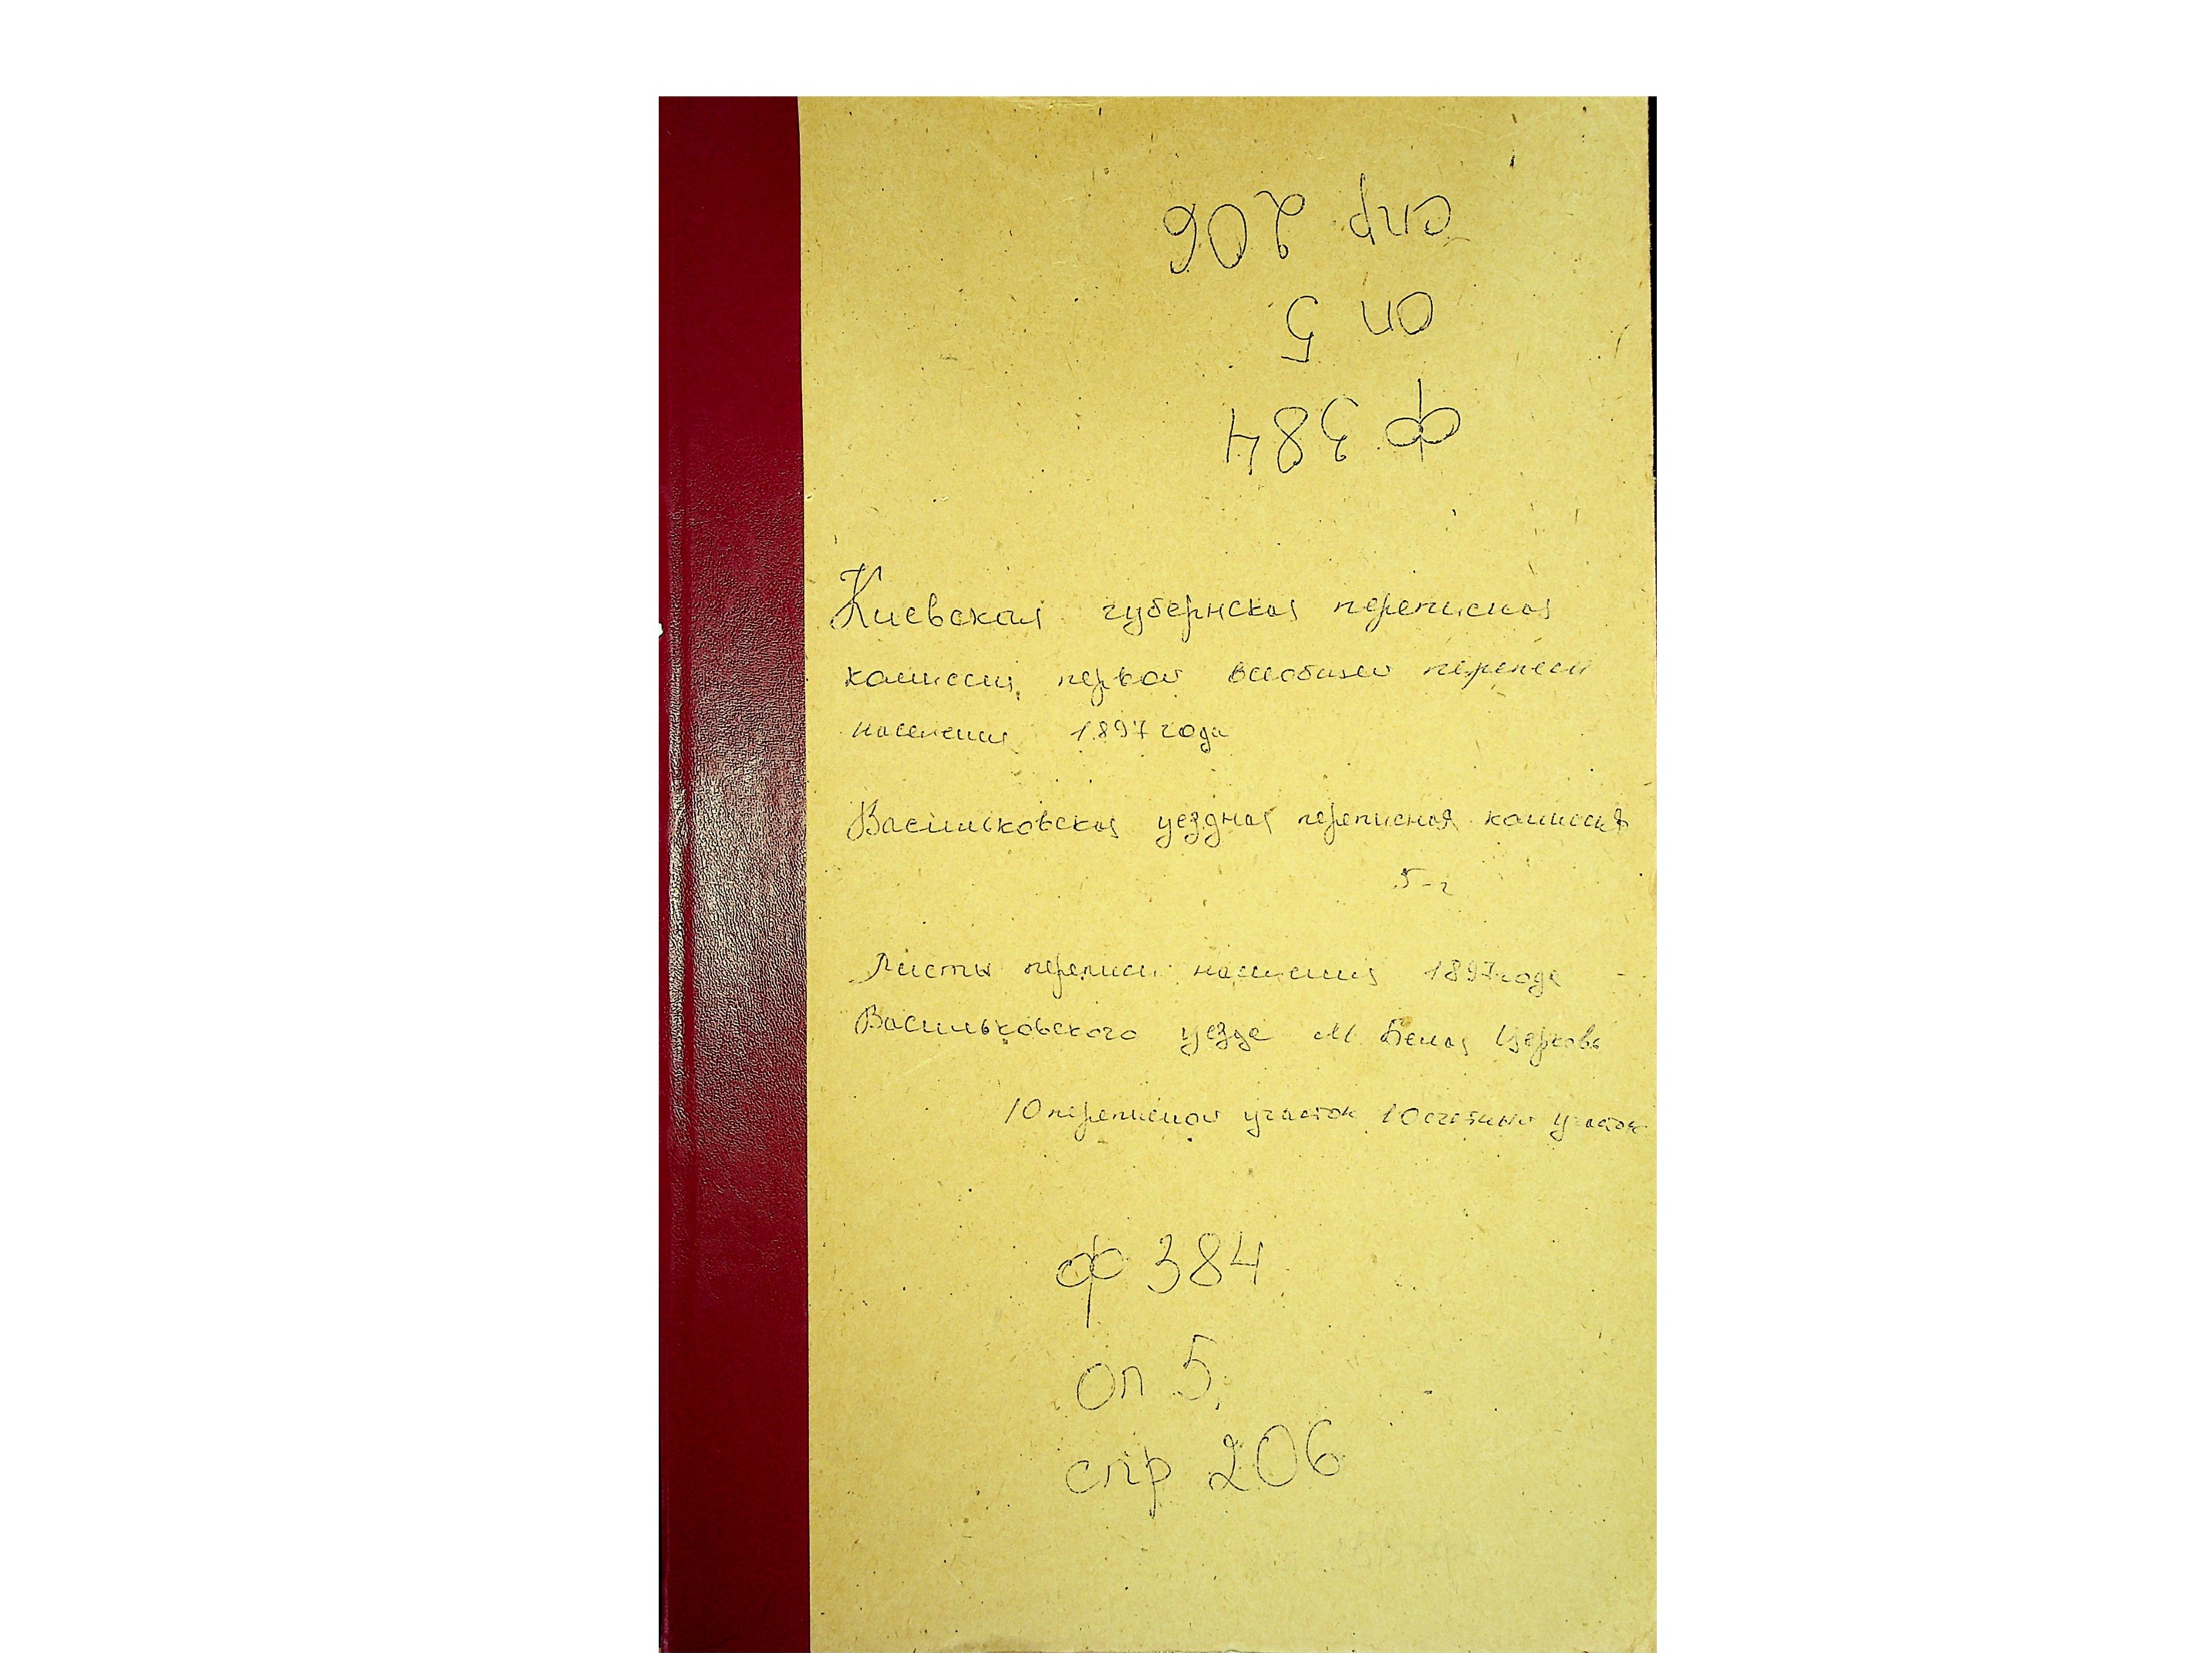 спр 206
оп 5
ф 384
Киевская губернская переписная
комиссия первой всеобщей переписи
населения 1897 года
Васильковская уездная переписная комиссия
Листы переписи населения 1897 года
Васильковского уезда м. Белая Церковь
10 переписной участок 10 счетный участок
ф 384
оп 5
спр 206